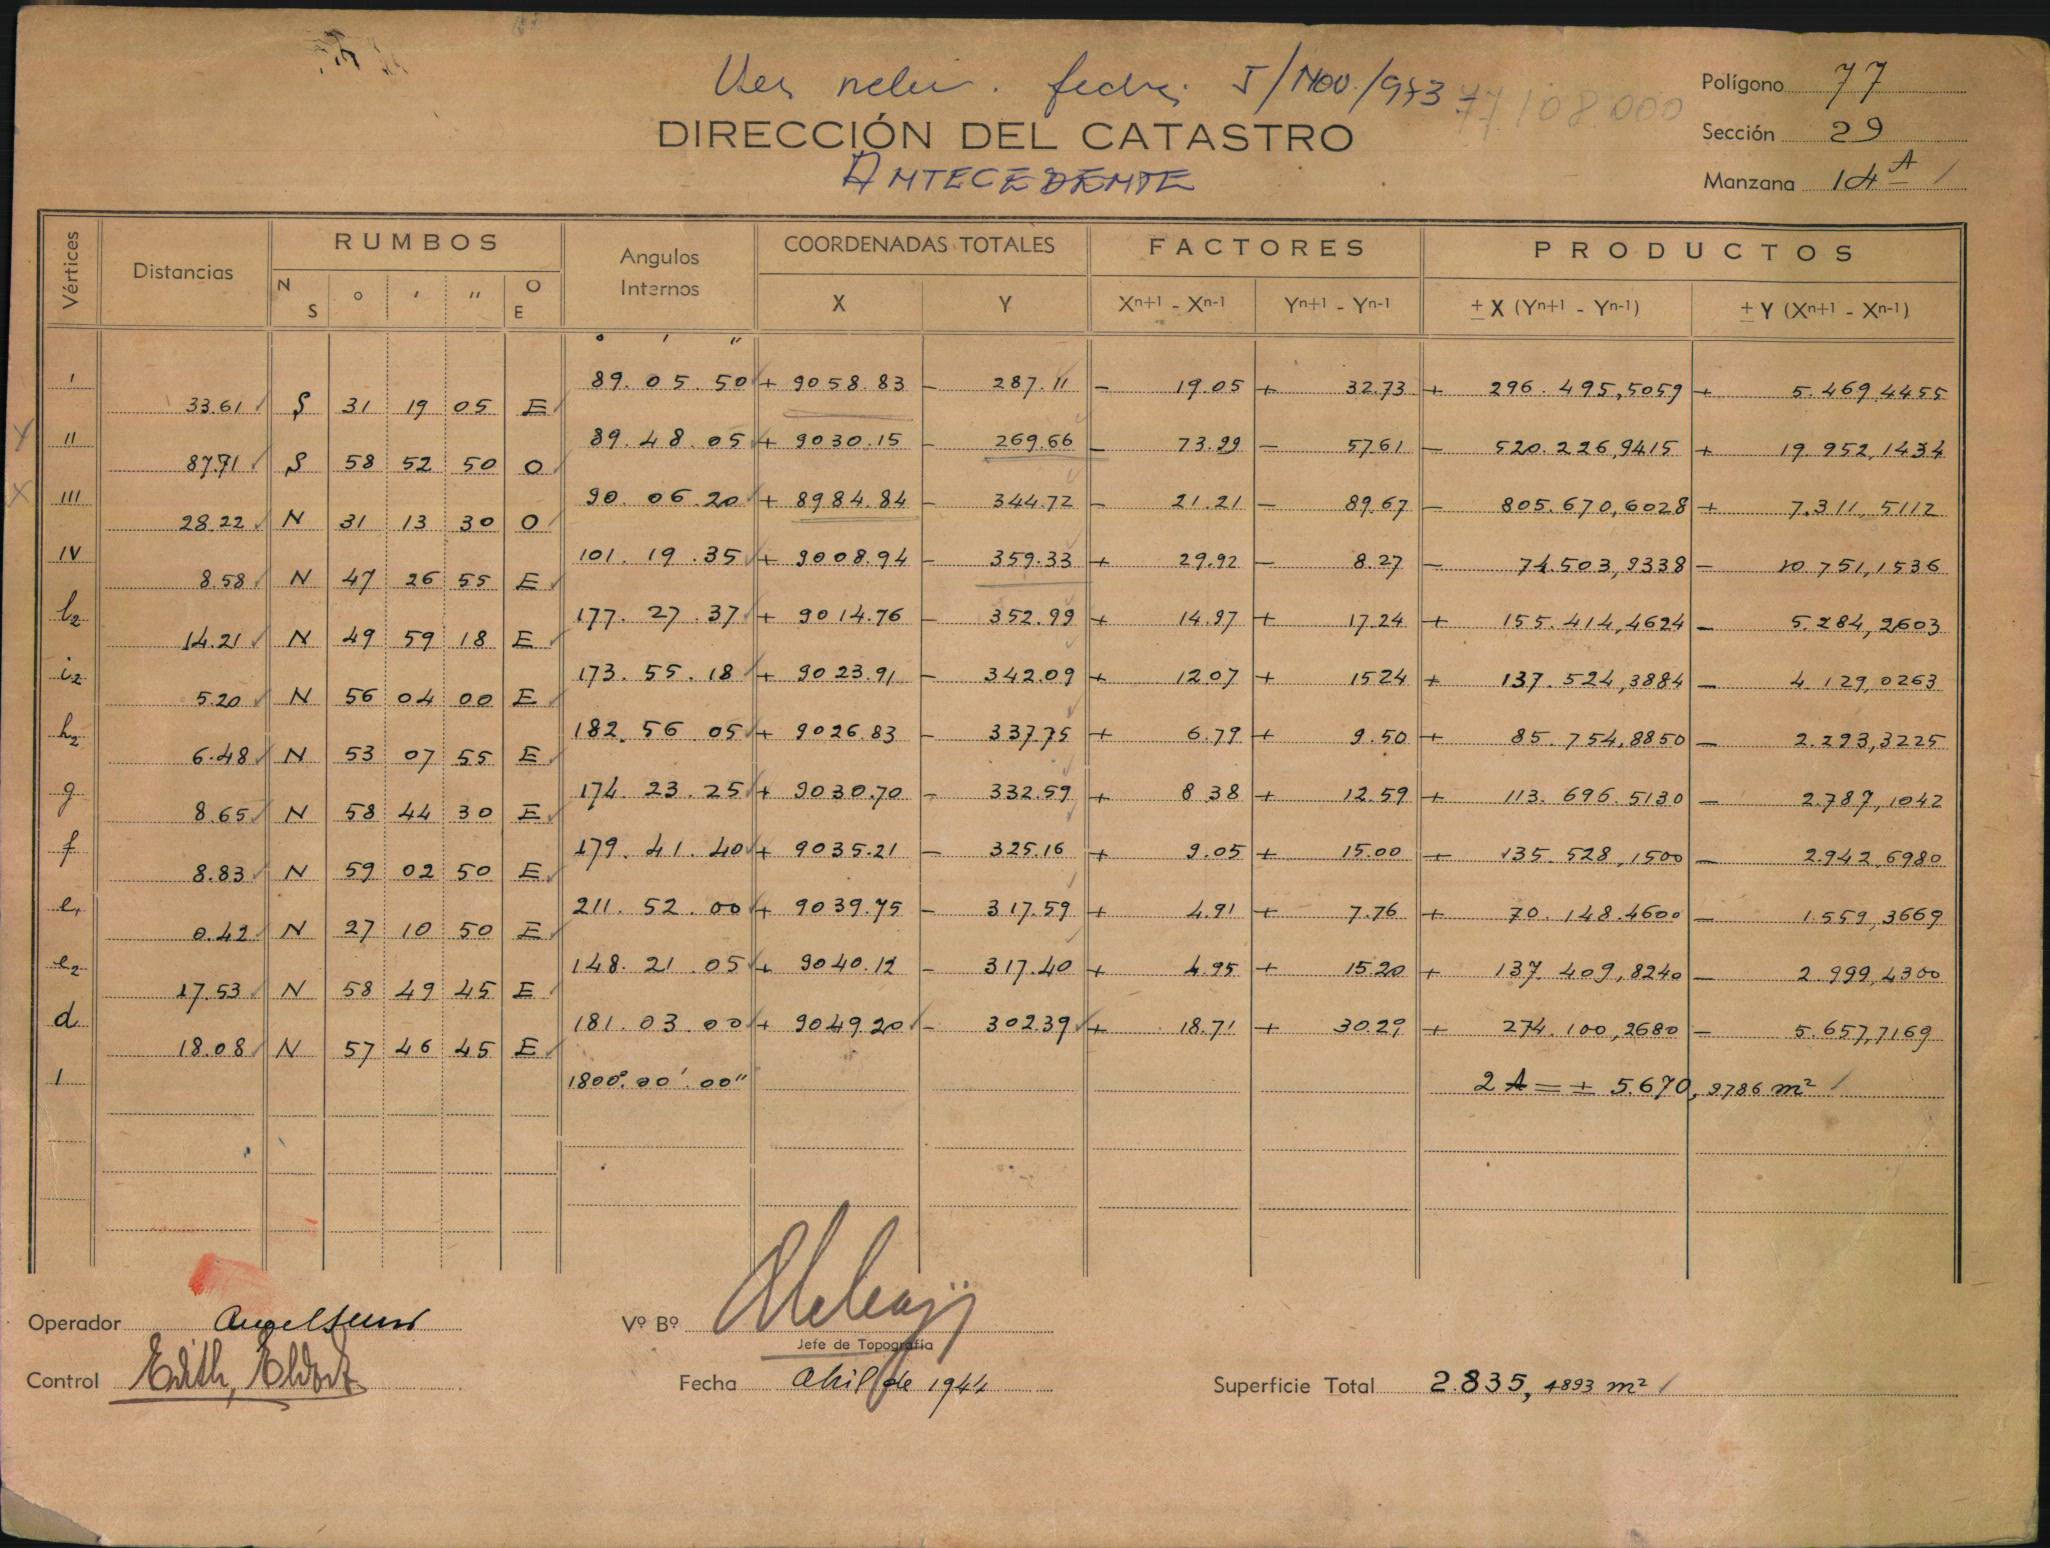 fecha: 5/Nov./973
77108000
Polígono 77
DIRECCIÓN DEL CATASTRO
Sección 29
ANTECEDENTE
Manzana 14 A
Vértices Distancias RUMBOS Angulos Internos COORDENADAS TOTALES FACTORES PRODUCTOS
N S ° ' " O E X Y Xn+1 - Xn-1 Yn+1 - Yn-1 ± X (Yn+1 - Yn-1) ± Y (Xn+1 - Xn-1)
° ' "
I 89. 05. 50 + 9058.83 - 287.11 - 19.05 + 32.73 + 296.495,5059 + 5.469,4455
33.61 S 31 19 05 E
II 89. 48. 05 + 9030.15 - 269.66 - 73.99 - 57.61 - 520.226,9415 + 19.952,1434
87.71 S 58 52 50 O
III 90. 06. 20 + 8984.84 - 344.72 - 21.21 - 89.67 - 805.670,6028 + 7.311,5112
28.22 N 31 13 30 O
IV 101. 19. 35 + 9008.94 - 359.33 + 29.92 - 8.27 - 74.503,9338 - 10.751,1536
8.58 N 47 26 55 E
l2 177. 27. 37 + 9014.76 - 352.99 + 14.97 + 17.24 + 155.414,4624 - 5.284,2603
14.21 N 49 59 18 E
i2 173. 55. 18 + 9023.91 - 342.09 + 12.07 + 15.24 + 137.524,3884 - 4.129,0263
5.20 N 56 04 00 E
h2 182. 56 05 + 9026.83 - 337.75 + 6.79 + 9.50 + 85.754,8850 - 2.293,3225
6.48 N 53 07 55 E
g 174. 23. 25 + 9030.70 - 332.59 + 8.38 + 12.59 + 113.696.5130 - 2.787,1042
8.65 N 58 44 30 E
f 179. 41. 40 + 9035.21 - 325.16 + 9.05 + 15.00 + 135.528,1500 - 2.942,6980
8.83 N 59 02 50 E
e1 211. 52. 00 + 9039.75 - 317.59 + 4.91 + 7.76 + 70.148.4600 - 1.559,3669
0.42 N 27 10 50 E
e2 148. 21. 05 + 9040.12 - 317.40 + 9.45 + 15.20 + 137.409,8240 - 2.999,4300
17.53 N 58 49 45 E
d 181. 03. 00 + 9049.20 - 302.39 + 18.71 + 30.29 + 274.100,2680 - 5.657,7169
18.08 N 57 46 45 E
I 1800°.00'.00" 2 A = ± 5.670,9786 m²
Operador
Vº Bº
Jefe de Topografía
Control Edith
Fecha Abril de 1944
Superficie Total 2.835,4893 m²